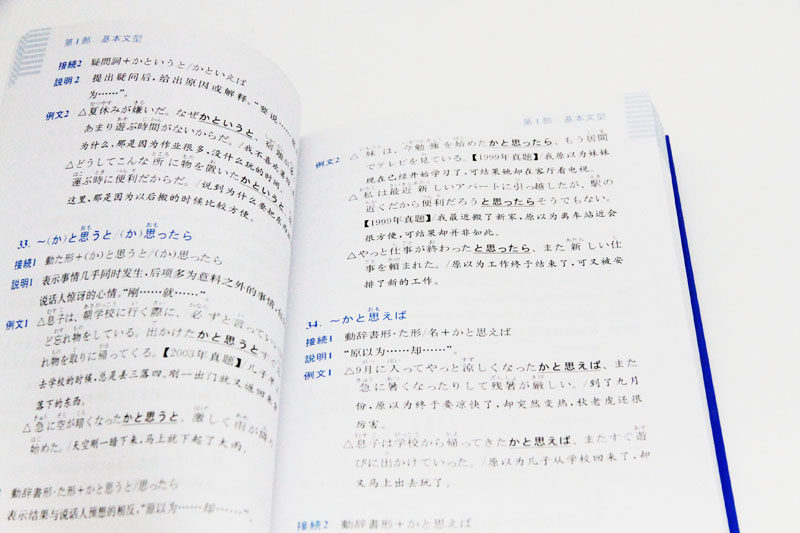 第1部 基本文型
接続2 疑問詞+かというと/かといえば
説明2 提出疑问后,给出原因或解释。"要说……
为……"。
例文2 △夏休みが嫌いだ。なぜかというと、宿題が
あまり遊ぶ時間がないからだ。/我不喜
为什么,那是因为作业很多,没什么玩的时间。
△どうしてこんな所に物を置いたかというと、
運ぶ時に便利だからだ。/说到为什么要把东
这里,那是因为以后搬的时候比较方便。
33. ~(か)と思うと/(か)思ったら
接続1 動た形+(か)と思うと/(か)思ったら
説明1 表示事情几乎同时发生,后项多为意料之外的事情,
说话人惊讶的心情。"刚……就……"。
例文1 △息子は、朝学校に行く際に、必ずと言ってい
ど忘れ物をしている。出かけたかと思うと
れ物を取りに帰ってくる。【2003年真题】/儿子
去学校的时候,总是丢三落四。刚一出门就又返回来
落下的东西。
△急に空が暗くなったかと思うと、激しく雨が降り
始めた。/天空刚一暗下来,马上就下起了大雨。
動辞書形·た形+かと思うと/思ったら
表示结果与说话人预想的相反,"原以为……却……。"
第1部 基本文型
例文2 △妹は、今勉強を始めたかと思ったら、もう居間
でテレビを見ている。【1999年真题】/我原以为妹妹
现在已经开始学习了,可结果她却在客厅看电视。
△私は最近新しいアパートに引っ越したが、駅の
近くだから便利だろうと思ったらそうでもない。
【1999年真题】/我最近搬了新家,原以为离车站近会
很方便,可结果却并非如此。
△やっと仕事が終わったと思ったら、また新しい仕
事を頼まれた。/原以为工作终于结束了,可又被安
排了新的工作。
34. ~かと思えば
接続1 動辞書形·た形/名+かと思えば
説明1 "原以为……却……"。
例文1 △9月に入ってやっと涼しくなったかと思えば、また
急に暑くなったりして残暑が厳しい。/到了九月
份,原以为终于要凉快了,却突然变热,秋老虎还很
厉害。
△息子は学校から帰ってきたかと思えば、またすぐ遊
びに出かけていった。/原以为儿子从学校回来了,却
又马上出去玩了。
接続2 動辞書形+かと思えば